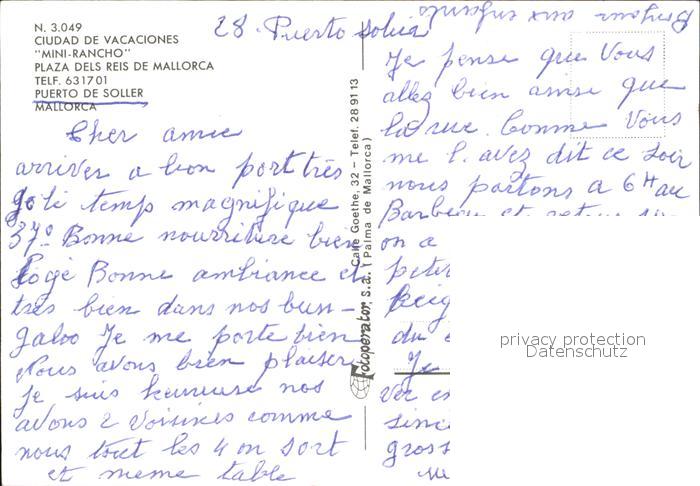 N. 3.049
CIUDAD DE VACACIONES
"MINI-RANCHO"
PLAZA DELS REIS DE MALLORCA
TELF. 631701
PUERTO DE SOLLER
MALLORCA
28 Puerto
Cher amie
arriver a bon port très
joli temps magnifique
37° Bonne nourriture bien
logé Bonne ambiance et
très bien dans nos bun-
galoo Je me porte bien
Nous avons bien plaiser
je suis heureuse nos
avons 2 voisines comme
nous tout les 4 on sort
et meme table
Fotoperator, s.a. Calle Goethe, 32 - Telef. 28 91 13
(Palma de Mallorca)
Bonjour aux enfants
Je pense que Vous
allez bien ainsie que
la rue. Comme Vous
me l. avez dit ce soir
nous partons a 6H au
Barbecu et
on a
peter
du
Je
Ver
sinc
gross
privacy protection
Datenschutz